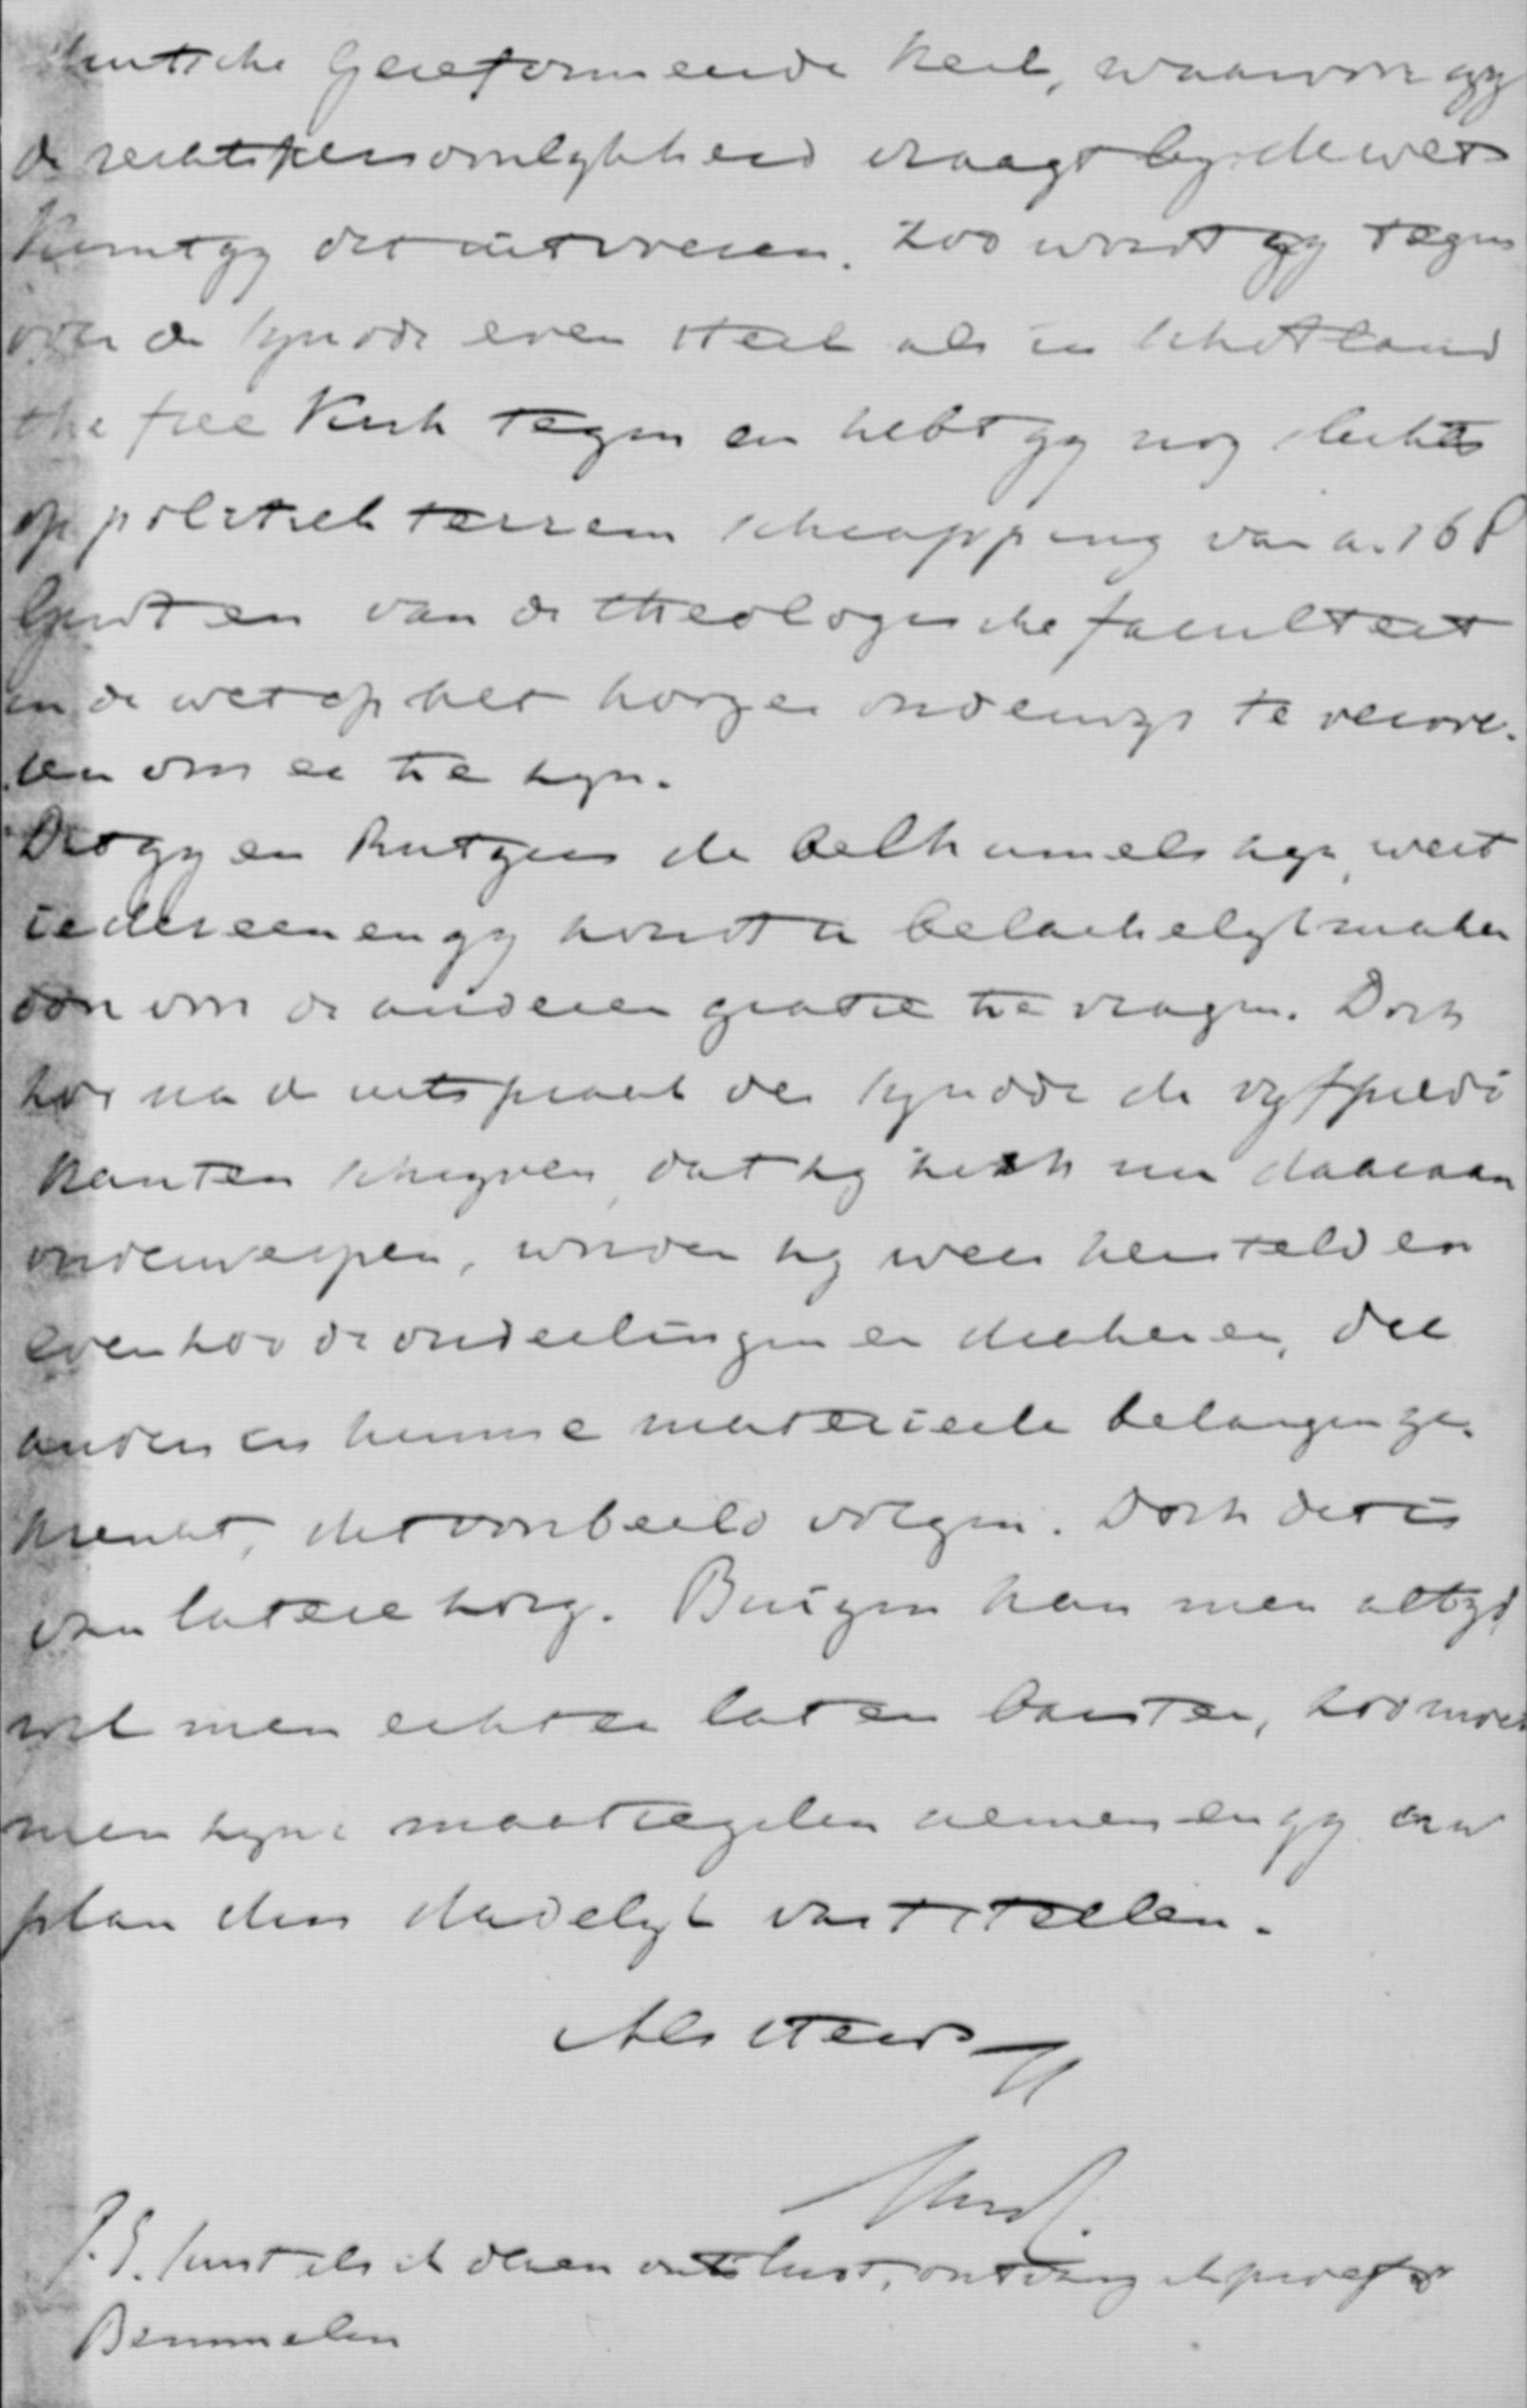 Gereformeerde Kerk, waarvoor gy
de rechtspersoonlykheid vraagt by de wet
Kunt gy dit uitvoeren. Zoo wordt gy tegen
over de synode even sterk als in Schotland
the free Kerk tegen en hebt gy nog slechts
op politiek terrein schrapping van a. 168
Gwt en van de theologische faculteit
in de wet op het hooger onderwys te verove-
ren om er te zyn.
Dat gy en Rutgers de belhamels zyn, weet
iedereen en gy hoedt u belachelyk maken
door om de anderen gratie te vragen. Doch
zoo na de uitspraak der synode de vyf predi
kanten schryven, dat zy zich nu daaraan
onderwerpen, worden zy weer hersteld en
even zoo de ouderlingen en diakenen, die
anders in hunne materieele belangen ge-
krenkt, dit voorbeeld volgen. Doch dit is
van latere zorg. Buigen kan men altyd
wil men echter laten barsten, zoo moet
men zyne maatregelen nemen en gy uw
plan dus dadelyk vaststellen.
Als steeds
P.S. Juist als ik dezen uitslust, ontvang ik proef v
Bemmelen